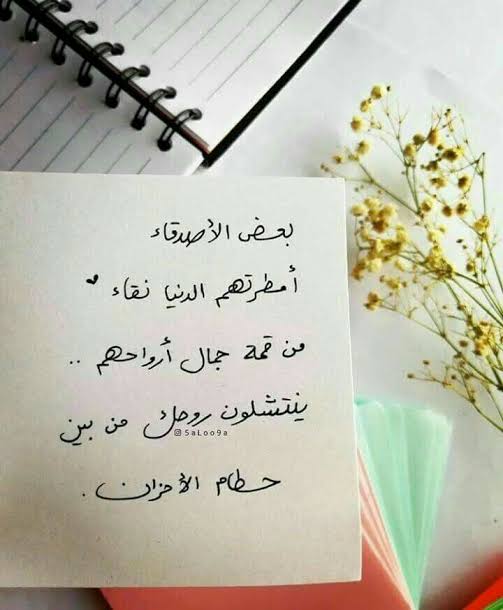 بعض الأصدقاء
أمطرتهم الدنيا نقاء
من قمة جمال أرواحهم ..
ينتشلون روحك من بين
5aLoo9a
حطام الأحزان .